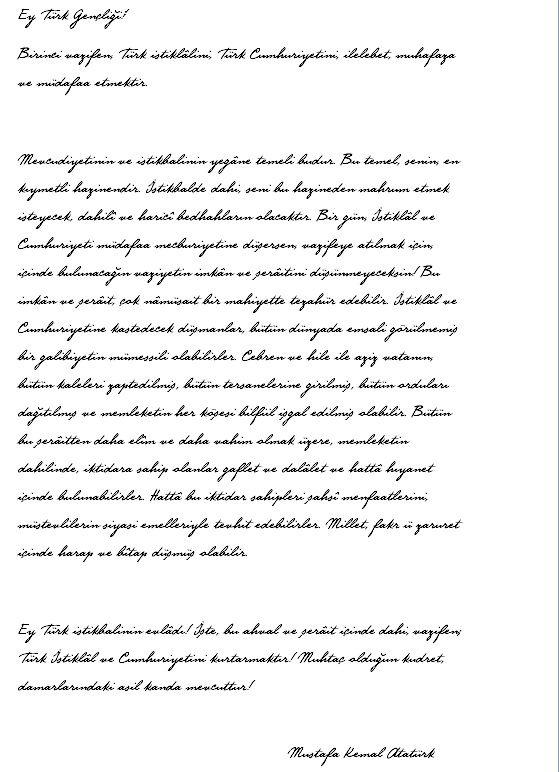 Ey Türk Gençliği!
Birinci vazifen, Türk istiklâlini, Türk Cumhuriyetini, ilelebet, muhafaza
ve müdafaa etmektir.
Mevcudiyetinin ve istikbalinin yegâne temeli budur. Bu temel, senin, en
kıymetli hazinendir. İstikbalde dahi, seni bu hazineden mahrum etmek
isteyecek, dahilî ve haricî bedhahların olacaktır. Bir gün, İstiklâl ve
Cumhuriyeti müdafaa mecburiyetine düşersen, vazifeye atılmak için,
içinde bulunacağın vaziyetin imkân ve şerâitini düşünmeyeceksin! Bu
imkân ve şerâit, çok nâmüsait bir mahiyette tezahür edebilir. İstiklâl ve
Cumhuriyetine kastedecek düşmanlar, bütün dünyada emsali görülmemiş
bir galibiyetin mümessili olabilirler. Cebren ve hile ile aziz vatanın,
bütün kaleleri zaptedilmiş, bütün tersanelerine girilmiş, bütün orduları
dağıtılmış ve memleketin her köşesi bilfiil işgal edilmiş olabilir. Bütün
bu şerâitten daha elîm ve daha vahim olmak üzere, memleketin
dahilinde, iktidara sahip olanlar gaflet ve dalâlet ve hattâ hıyanet
içinde bulunabilirler. Hattâ bu iktidar sahipleri şahsî menfaatlerini,
müstevlilerin siyasi emelleriyle tevhit edebilirler. Millet, fakr ü zaruret
içinde harap ve bîtap düşmüş olabilir.
Ey Türk istikbalinin evlâdı! İşte, bu ahval ve şerâit içinde dahi, vazifen;
Türk İstiklâl ve Cumhuriyetini kurtarmaktır! Muhtaç olduğun kudret,
damarlarındaki asil kanda mevcuttur!
Mustafa Kemal Atatürk